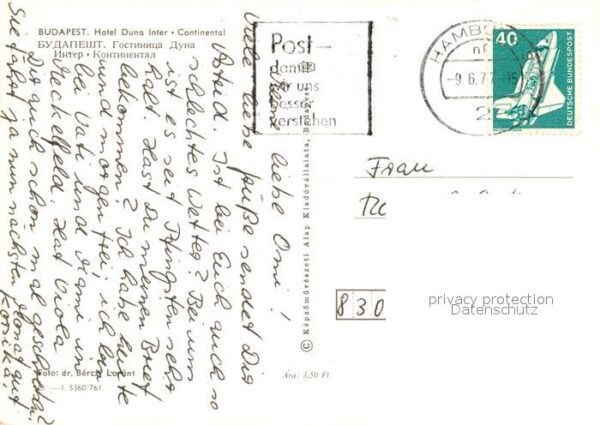 BUDAPEST. Hotel Duna Inter • Continental
БУДАПЕШТ. Гостиница Дуна
Интер • Континентал
Liebe Omi!
Viele liebe Grüße sendet Dir
Ist bei Euch auch so
schlechtes Wetter? Bei uns
ist es seit Pfingsten sehr
kalt. Hast Du meinen Brief
bekommen? Ich habe heute
und morgen frei, ich bin
bei Vati und Mami in
Meckelfeld. Hat Viola
Dir auch schon mal geschrieben?
Sie fährt ja nun nächsten Monat auf
Korsika.
Foto: dr. Bérczi Loránt
— f. 5360/761.
© Képzőművészeti Alap Kiadóvállalata, Budapest
Ára: 3,50 Ft
Post-
damit
wir uns
besser
verstehen
HAMBURG
-9.6.77-15
2
40
DEUTSCHE BUNDESPOST
Frau
830
privacy protection
Datenschutz